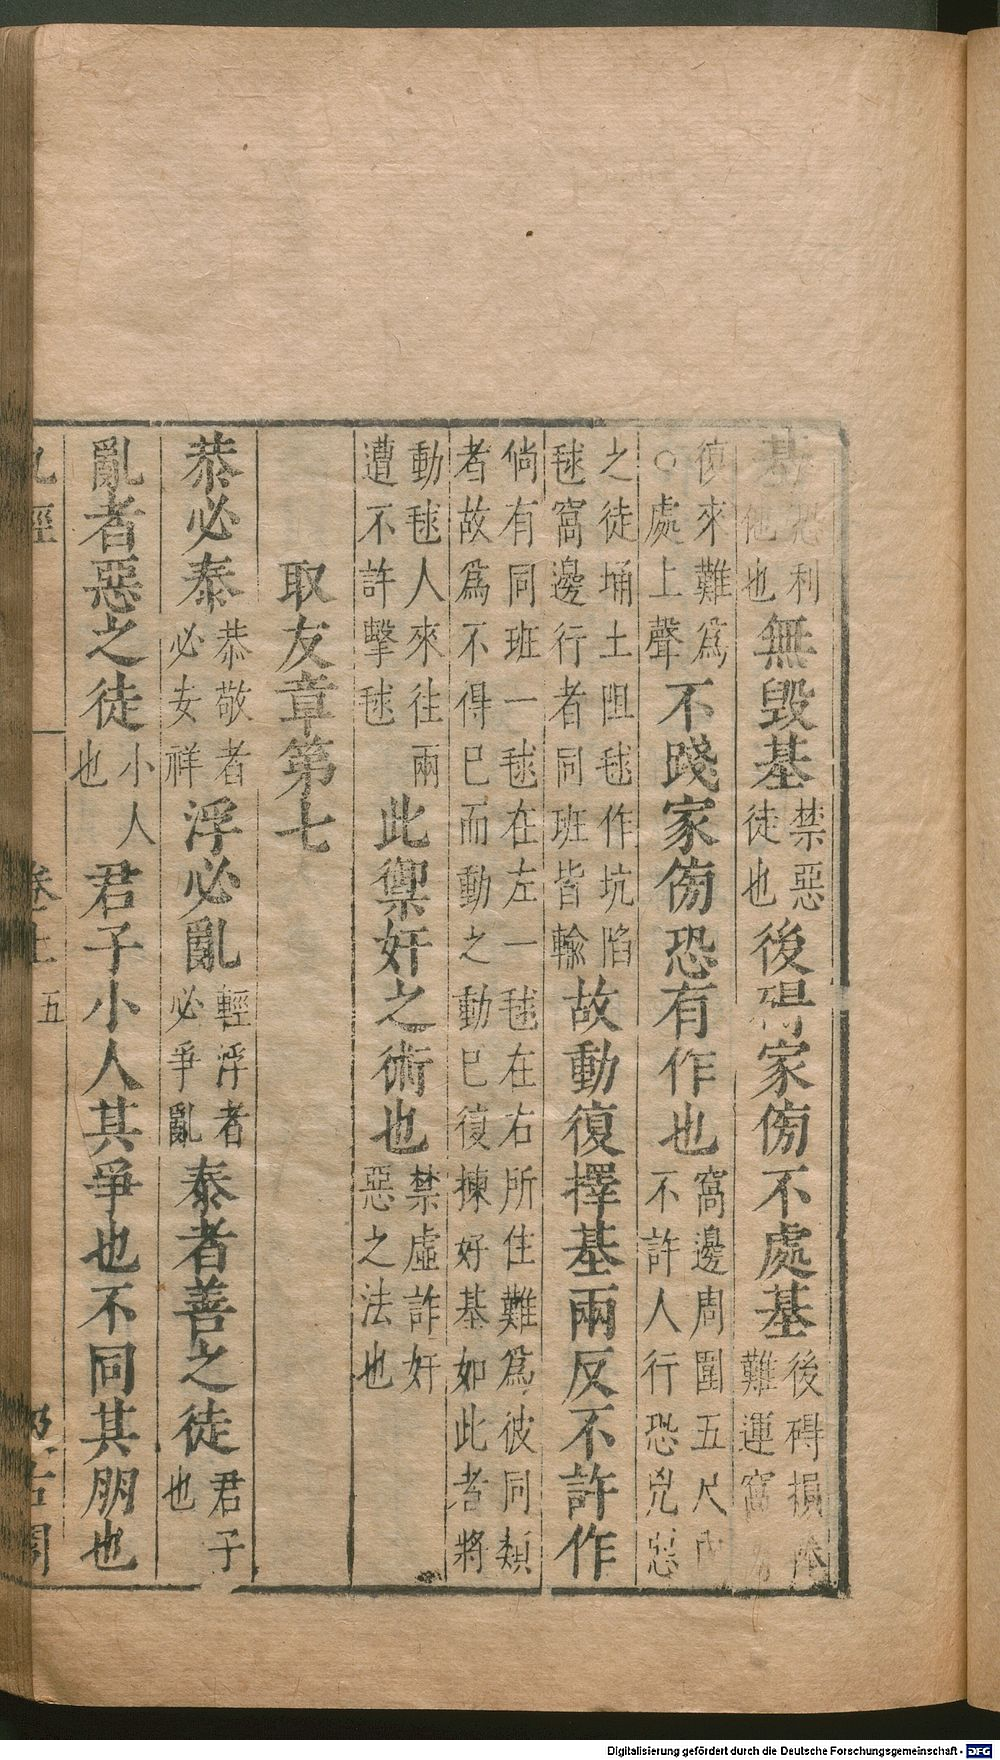 基恐利他也無毀基禁惡徒也後得家傍不處基後碍損難運窩
復來難爲○處上聲不踐家傍恐有作也窩邊周圍五尺内不許人行恐兇惡
之徒埇土阻毬作坑陷毬窩邊行者同班皆輸故動復擇基兩反不許作
倘有同班一毬在左一毬在右所住難爲彼同類者故爲不得巳而動之動巳復揀好基如此者將
動毬人來往兩遭不許擊毬此禦奸之術也禁虛詐奸惡之法也
取友章第七
恭必泰恭敬者必安祥浮必亂輕浮者必爭亂泰者善之徒君子也
亂者惡之徒小人也君子小人其爭也不同其朋也
丸經 卷上 五 汲古閣
Digitalisierung gefördert durch die Deutsche Forschungsgemeinschaft - DFG